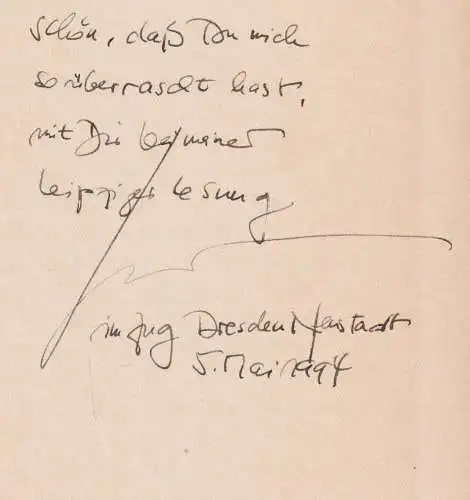 schön, daß Du mich
so überrascht hast,
mit Dir bei meiner
Leipziger Lesung
im Zug Dresden Neustadt
5. Mai 1994